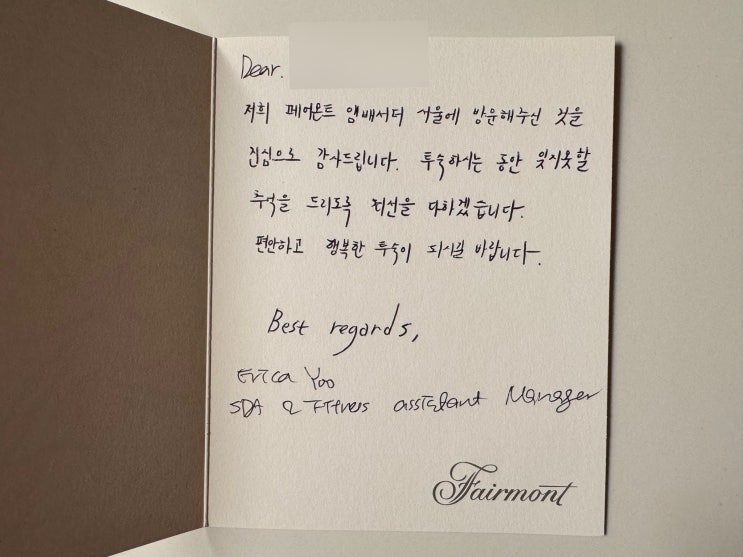 Dear.
저희 페어몬트 앰배서더 서울에 방문해주신 것을
진심으로 감사드립니다. 투숙하시는 동안 잊지못할
추억을 드리도록 최선을 다하겠습니다.
편안하고 행복한 투숙이 되시길 바랍니다.
Best regards,
Erica Yoo
& Fitness assistant Manager
Fairmont